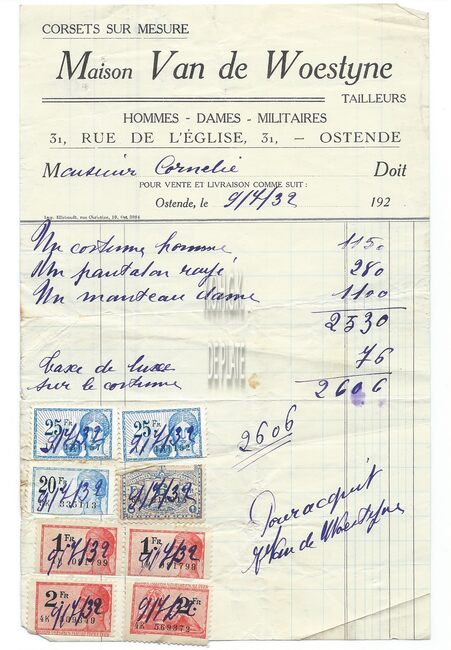 CORSETS SUR MESURE
Maison Van de Woestyne
TAILLEURS
HOMMES - DAMES - MILITAIRES
31, RUE DE L'ÉGLISE, 31, — OSTENDE
Monsieur Cornelie Doit
POUR VENTE ET LIVRAISON COMME SUIT :
Ostende, le 9/7/32 192
Un costume homme 1150
Un pantalon rayé 280
Un manteau dame 1100
2530
Taxe de luxe 76
sur le costume
2606
2606
Pour acquit
Van de Woestyne
25 FR 9/7/32
25 FR 9/7/32
20 FR 9/7/32
9/7/32
1 FR 9/7/32
1 FR 9/7/32
2 FR 9/7/32
9/7/32 2 FR
KONICK
DEPLATE